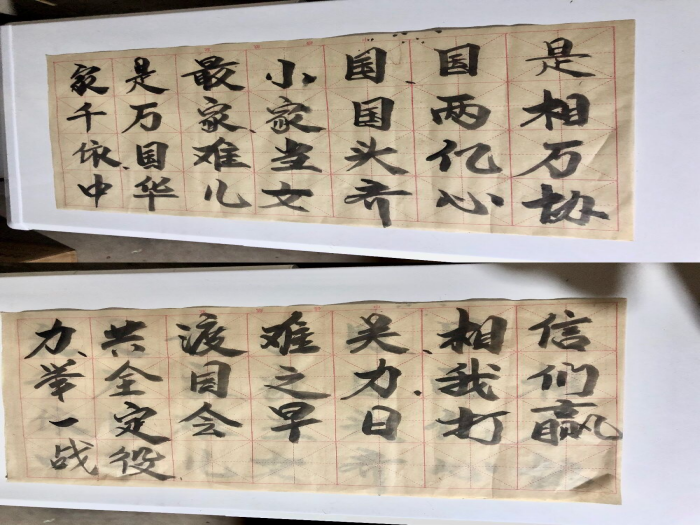 家是最小国国是
千万家家国两相
依国难当头亿万
中华儿女齐心协
力共渡难关相信
举全国之力我们
一定会早日打赢
战役